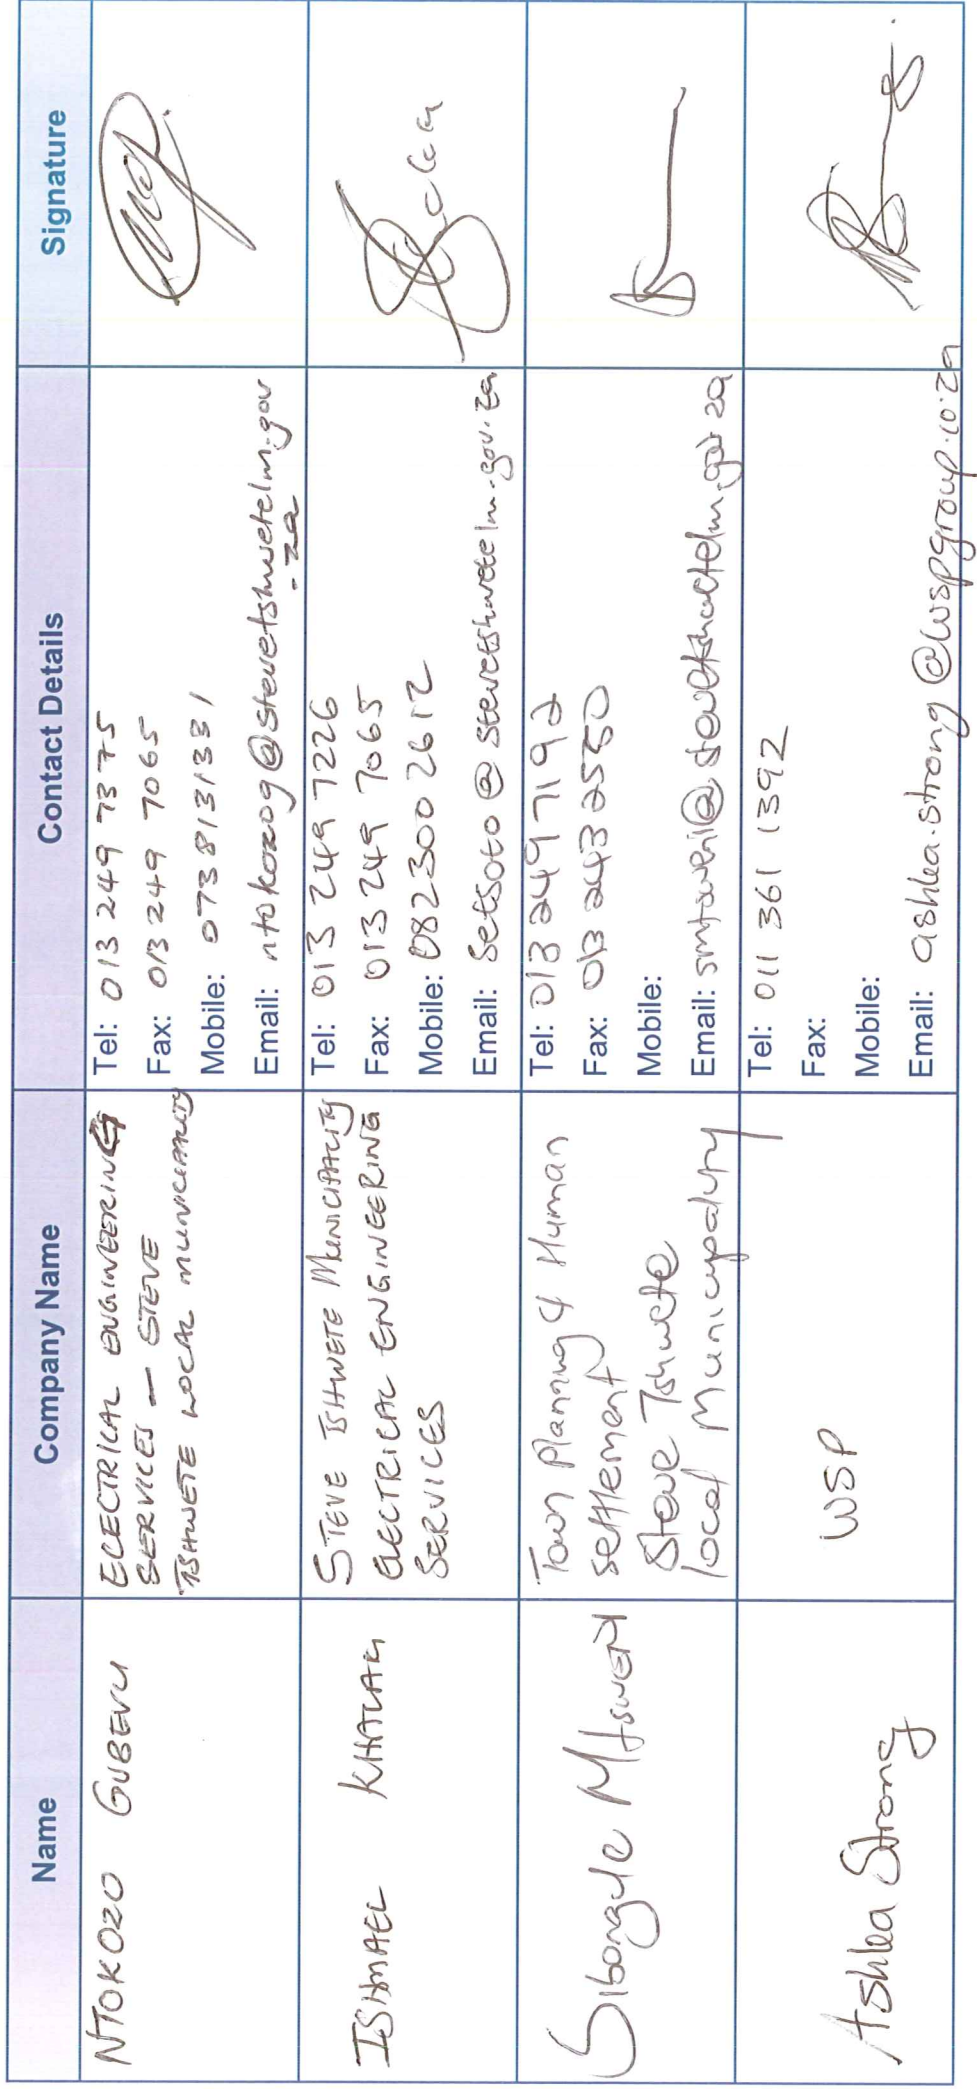 Name Company Name Contact Details Signature
NTOKOZO GUBEVU
ELECTRICAL ENGINEERING
SERVICES — STEVE
TSHWETE LOCAL MUNICIPALITY
Tel: 013 249 7375
Fax: 013 249 7065
Mobile: 073 813 1331
Email: ntokozog@stevetshwetelm.gov
.za
ISHMAEL
STEVE TSHWETE MUNICIPALITY
ELECTRICAL ENGINEERING
SERVICES
Tel: 013 249 7226
Fax: 013 249 7065
Mobile: 082 300 2612
Email: Setsoto@stevetshwetelm.gov.za
Sibongile Mtsweni
Town Planning & Human
settlement
Steve Tshwete
local Municipality
Tel: 013 249 7192
Fax: 013 243 2550
Mobile:
Email:
Ashlea Strong
WSP
Tel: 011 361 1392
Fax:
Mobile:
Email: ashlea.strong@wspgroup.co.za